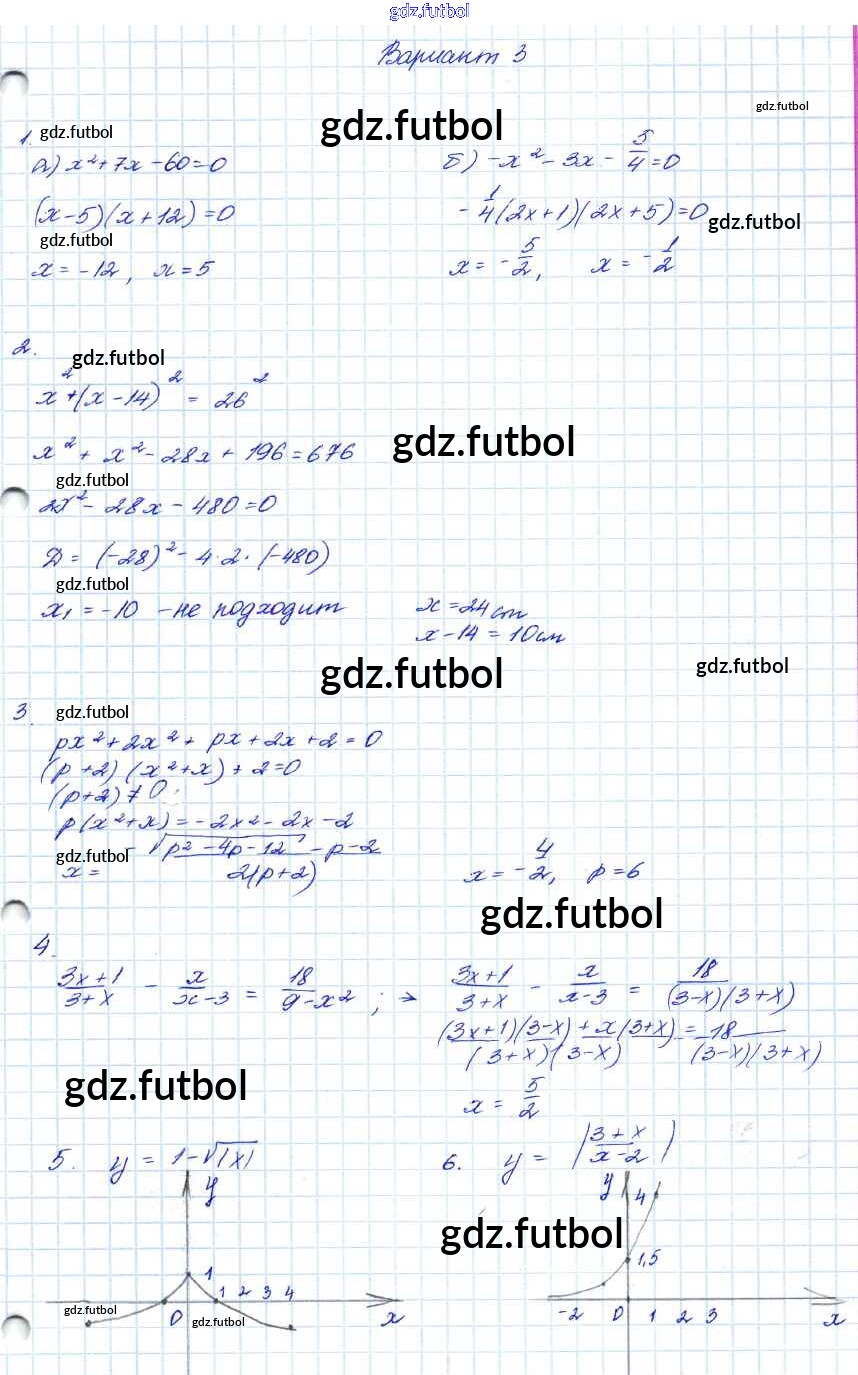 gdz.futbol
Вариант 3
gdz.futbol
1. gdz.futbol
gdz.futbol
а) x²+7x-60=0
б) -x²-3x-5/4=0
(x-5)(x+12)=0
-1/4(2x+1)(2x+5)=0
gdz.futbol
gdz.futbol
x=-12, x=5
x=-5/2, x=-1/2
2.
gdz.futbol
x²+(x-14)²=26²
gdz.futbol
x²+x²-28x+196=676
gdz.futbol
2x²-28x-480=0
D=(-28)²-4·2·(-480)
gdz.futbol
x₁=-10 -не подходит
x=24 cm
x-14=10см
gdz.futbol
gdz.futbol
3. gdz.futbol
px²+2x²+px+2x+2=0
(p+2)(x²+x)+2=0
(p+2)≠0;
p(x²+x)=-2x²-2x-2
gdz.futbol
x= -√(p²-4p-12)-p-2/2(p+2)
x=-4/2, p=6
gdz.futbol
4.
3x+1/3+x - x/x-3 = 18/9-x² ; → 3x+1/3+x - x/x-3 = 18/(3-x)(3+x)
(3x+1)(3-x)+x(3+x)/(3+x)(3-x) = 18/(3-x)(3+x)
gdz.futbol
x=5/2
5. y=1-√|x|
6. y=|3+x/x-2|
y
1
1 2 3 4
gdz.futbol
0
gdz.futbol
x
y
4
gdz.futbol
1,5
-2 0 1 2 3
x